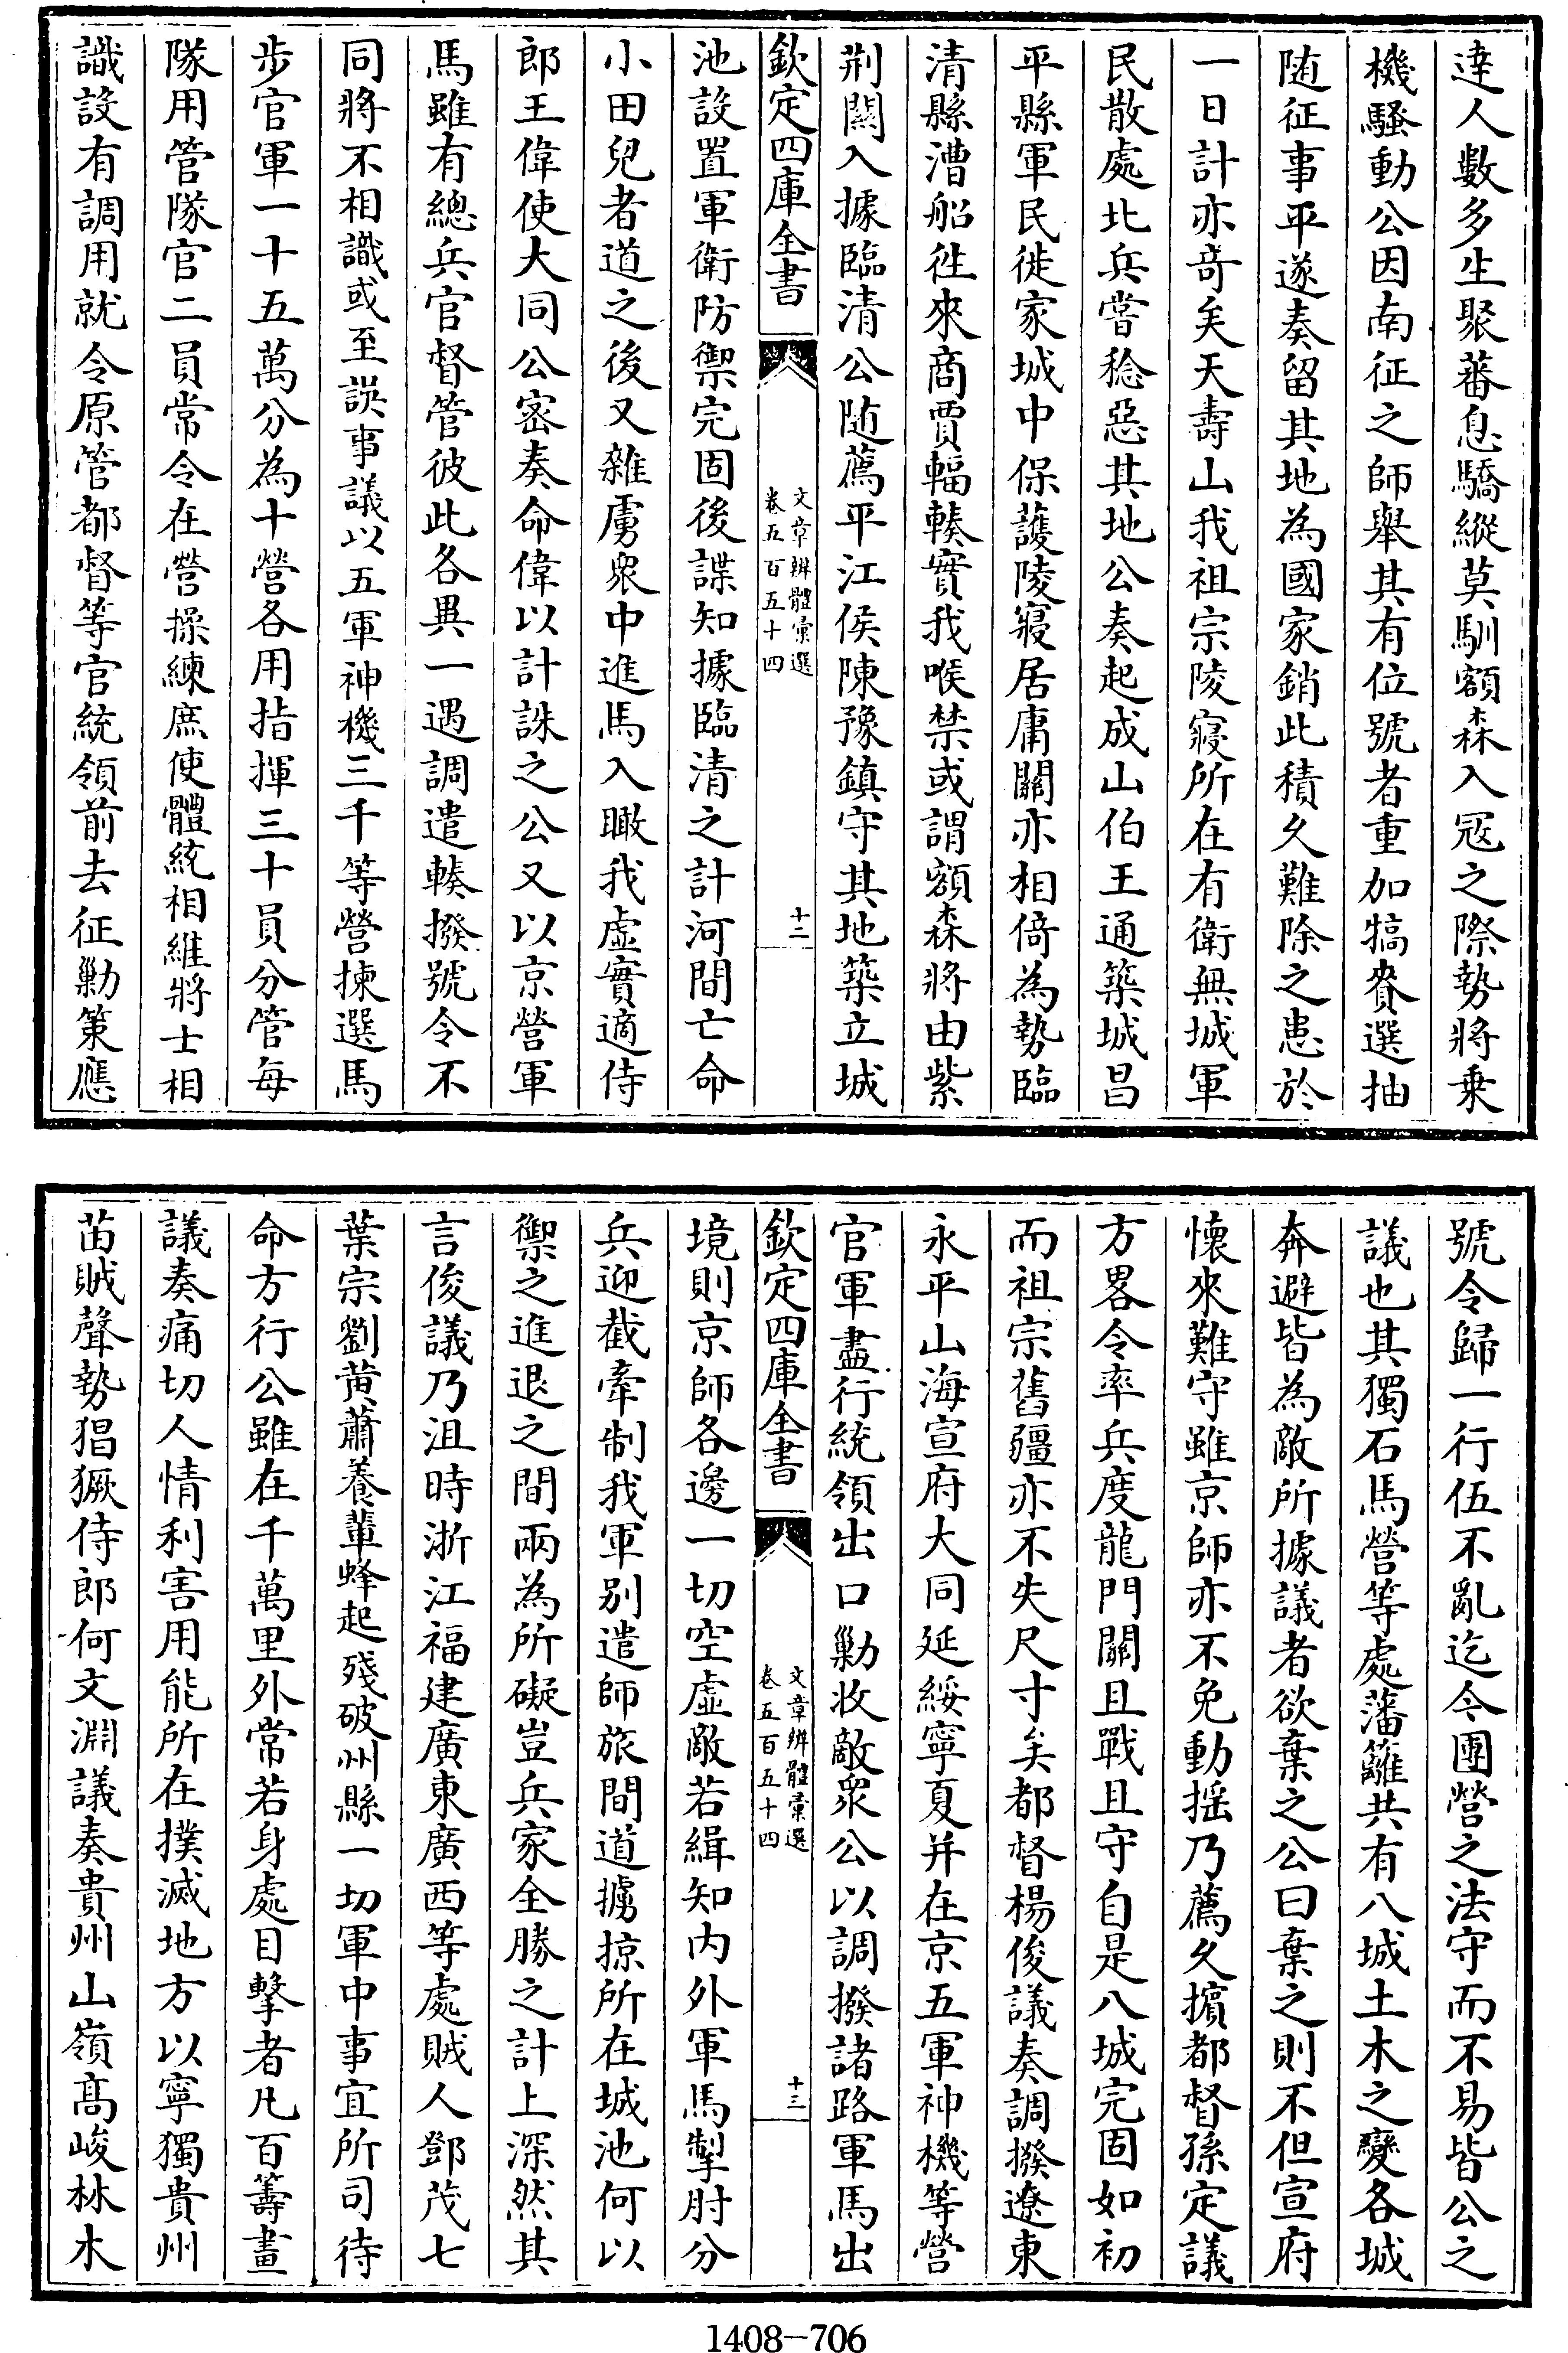 達人數多生聚蕃息驕縱莫馴額森入冦之際勢將乗
機騷動公因南征之師舉其有位號者重加犒賚選抽
随征事平遂奏留其地為國家銷此積久難除之患於
一日計亦竒矣天壽山我祖宗陵寢所在有衛無城軍
民散處北兵嘗稔惡其地公奏起成山伯王通築城昌
平縣軍民徙家城中保䕶陵寢居庸關亦相倚為勢臨
清縣漕船徃來商賈輻輳實我喉禁或謂額森將由紫
荆關入據臨清公随薦平江侯陳豫鎮守其地築立城
欽定四庫全書
文章辨體彚選
卷五百五十四
十二
池設置軍衛防禦完固後諜知據臨清之計河間亡命
小田兒者道之後又雜虜衆中進馬入瞰我虚實適侍
郎王偉使大同公宻奏命偉以計誅之公又以京營軍
馬雖有總兵官督管彼此各異一遇調遣輳撥號令不
同將不相識或至誤事議以五軍神機三千等營揀選馬
步官軍一十五萬分為十營各用指揮三十員分管毎
隊用管隊官二員常令在營操練庶使體統相維將士相
識設有調用就令原管都督等官統領前去征勦策應
號令歸一行伍不亂迄今團營之法守而不易皆公之
議也其獨石馬營等處藩籬共有八城土木之變各城
奔避皆為敵所據議者欲棄之公曰棄之則不但宣府
懷來難守雖京師亦不免動揺乃薦久擯都督孫定議
方畧令率兵度龍門關且戰且守自是八城完固如初
而祖宗舊疆亦不失尺寸矣都督楊俊議奏調撥遼東
永平山海宣府大同延綏寧夏并在京五軍神機等營
官軍盡行統領出口勦收敵衆公以調撥諸路軍馬出
欽定四庫全書
文章辨體彚選
卷五百五十四
十三
境則京師各邊一切空虚敵若緝知内外軍馬掣肘分
兵迎截牽制我軍别遣師旅間道擄掠所在城池何以
禦之進退之間兩為所礙豈兵家全勝之計上深然其
言俊議乃沮時浙江福建廣東廣西等處賊人鄧茂七
葉宗劉黄蕭養輩蜂起殘破州縣一切軍中事宜所司待
命方行公雖在千萬里外常若身處目擊者凡百籌畫
議奏痛切人情利害用能所在撲滅地方以寧獨貴州
苗賊聲勢猖獗侍郎何文淵議奏貴州山嶺髙峻林木
1408-706